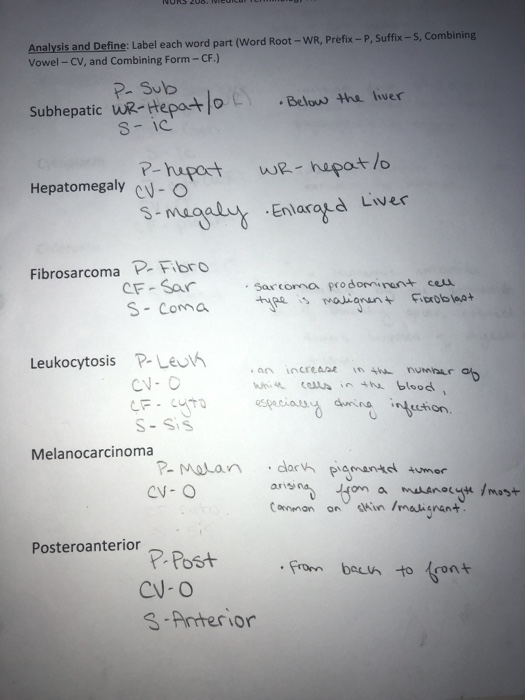 NURS 208: Medical Terminology
Analysis and Define: Label each word part (Word Root – WR, Prefix – P, Suffix – S, Combining
Vowel – CV, and Combining Form – CF.)
P- Sub
Subhepatic WR-Hepat/o · Below the liver
S- ic
P-hepat WR- hepat/o
Hepatomegaly CV-O
S-megaly · Enlarged Liver
Fibrosarcoma P- Fibro
CF- Sar · sarcoma prodominent cell
S- Coma type is malignant Fibroblast
Leukocytosis P-Leuk · an increase in the number of
CV- O white cells in the blood,
CF- cyto especially during infection.
S- Sis
Melanocarcinoma
P- Melan · dark pigmented tumor
CV-O arising from a melanocyte /most
common on skin /malignant.
Posteroanterior
P-Post · From back to front
CV-O
S-Anterior